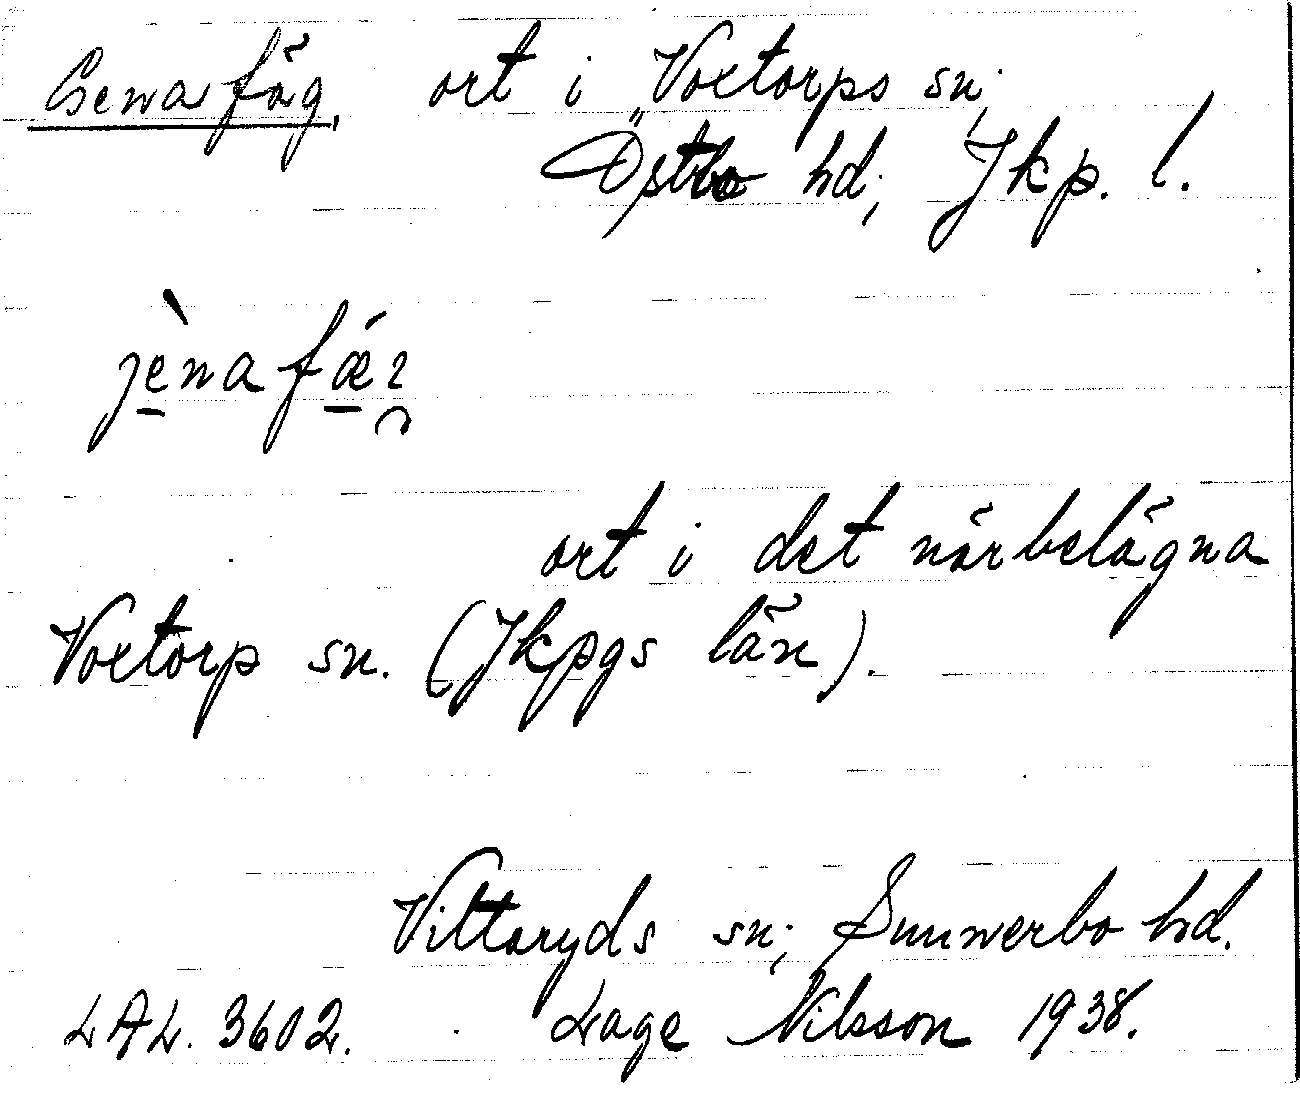 Genafäg, ort i Voxtorps sn;
Östbo hd; Jkp. l.
jèna fǽɪ
ort i det närbelägna
Voxtorp sn. (Jkpgs län).
Vittaryds sn; Sunnerbo hd.
LAL. 3602. Lage Nilsson 1938.